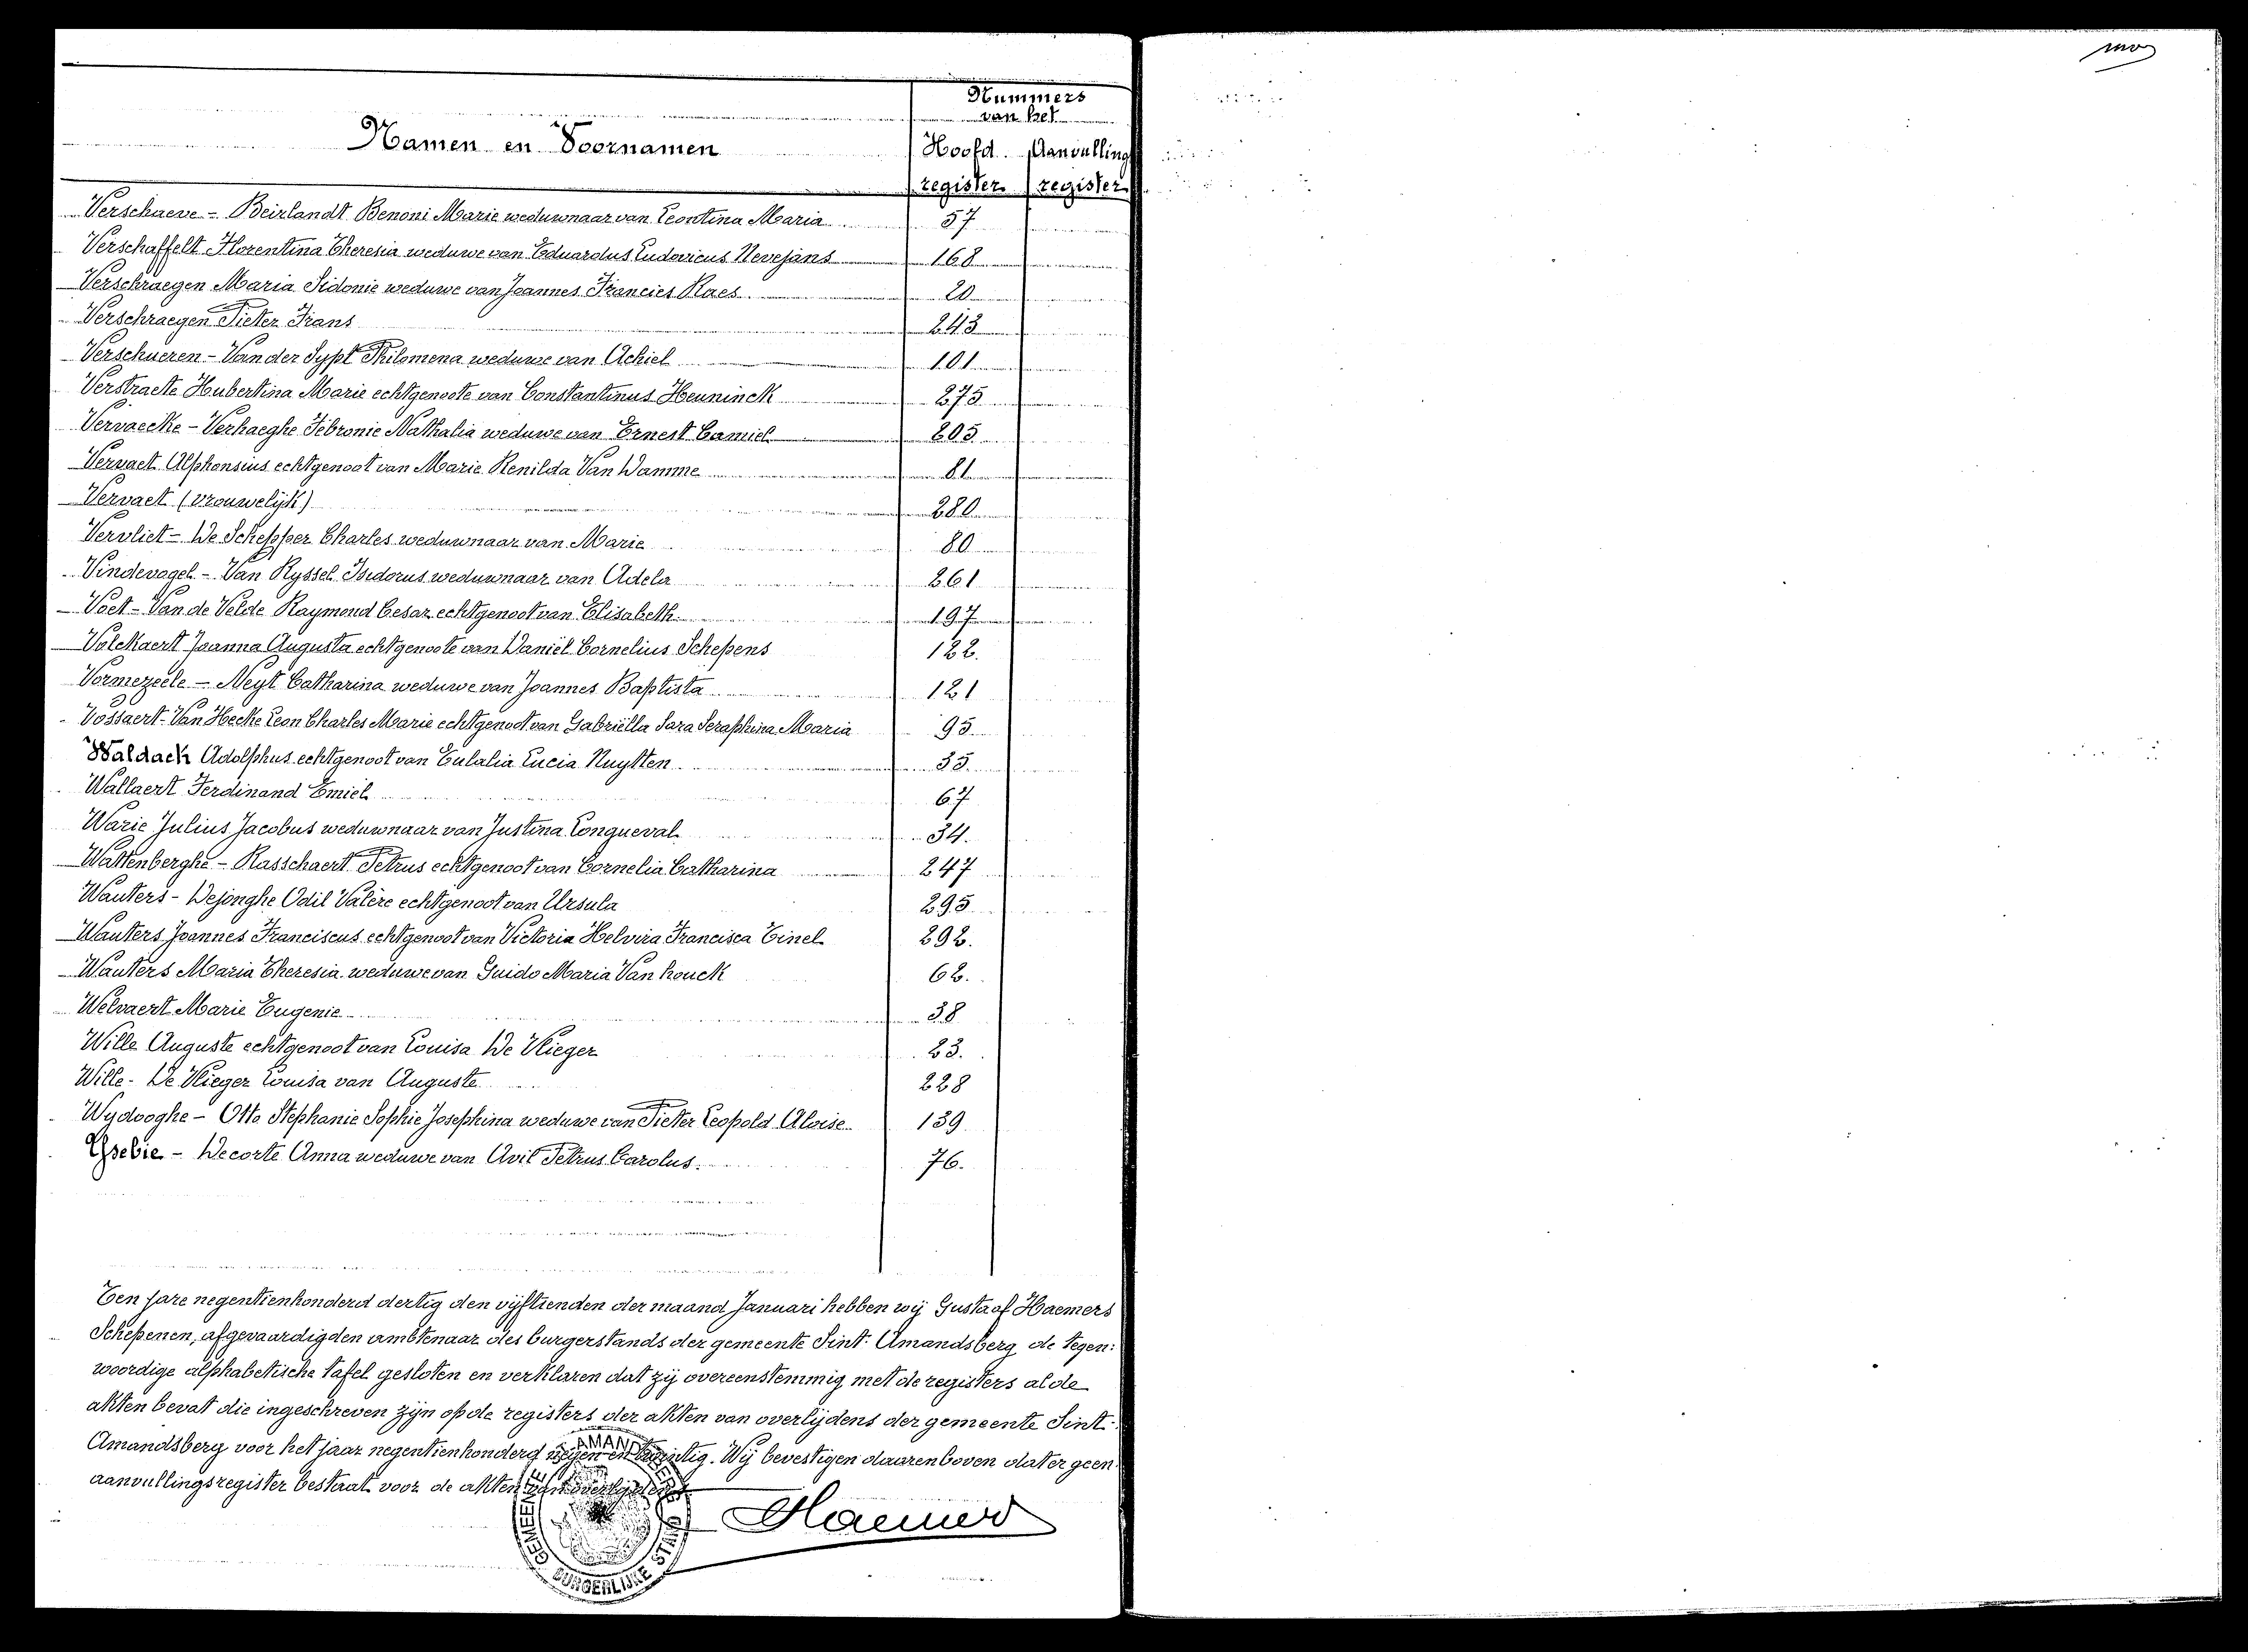 Nummers
van het
Namen en Voornamen Hoofd Aanvulling
register register
Verschaeve - Beirlandt Benoni Marie weduwnaar van Leontina Maria 57
Verschaffelt Florentina Theresia weduwe van Eduardus Ludovicus Nevejans 168
Verschraegen Maria Sidonie weduwe van Joannes Francies Raes 20
Verschraegen Pieter Frans 243
Verschueren - Van der Sypt Philomena weduwe van Achiel 101
Verstraete Hubertina Marie echtgenoote van Constantinus Heuninck 275
Vervaecke - Verhaeghe Febronie Nathalia weduwe van Ernest Camiel 205
Vervaet Alphonsius echtgenoot van Marie Renilda Van Damme 81
Vervaet (vrouwelijk) 280
Vervliet - De Schepper Charles weduwnaar van Marie 80
Vindevogel - Van Ryssel Isidorus weduwnaar van Adela 261
Voet - Van de Velde Raymond Cesar echtgenoot van Elisabeth 197
Volckaert Joanna Augusta echtgenoote van Daniël Cornelius Schepens 122.
Vormezeele - Neyt Catharina weduwe van Joannes Baptista 121
Vossaert - Van Hecke Leon Charles Marie echtgenoot van Gabriëlla Sara Seraphina Maria 95
Waldack Adolphus echtgenoot van Eulalia Lucia Nuytten 35.
Wallaert Ferdinand Emiel 67
Warie Julius Jacobus weduwnaar van Justina Longueval 34.
Wattenberghe - Rasschaert Petrus echtgenoot van Cornelia Catharina 247
Wauters - Dejonghe Odil Valère echtgenoot van Ursula 295
Wauters Joannes Franciscus echtgenoot van Victoria Helvira Francisca Tinel 292.
Wauters Maria Theresia weduwe van Guido Maria Van houck 62.
Welvaert Marie Eugenie 38
Wille Auguste echtgenoot van Louisa De Vlieger 23.
Wille - De Vlieger Louisa van Auguste 228
Wydooghe - Otto Stephanie Sophie Josephina weduwe van Pieter Leopold Aloise 139
Ysebie - Decorte Anna weduwe van Avil Petrus Carolus. 76.
Ten jare negentienhonderd dertig den vijftienden der maand Januari hebben wij Gustaaf Haemers
Schepenen, afgevaardigden ambtenaar des burgerstands der gemeente Sint-Amandsberg de tegen:
woordige alphabetische tafel gesloten en verklaren dat zij overeenstemmig met de registers al de
akten bevat die ingeschreven zijn op de registers der akten van overlijdens der gemeente Sint-
Amandsberg voor het jaar negentienhonderd negen en twintig. Wij bevestigen daarenboven dat er geen
aanvullingsregister bestaat voor de akten van overlijdens
Haemers
GEMEENTE AMANDSBERG
BURGERLIJKE STAND